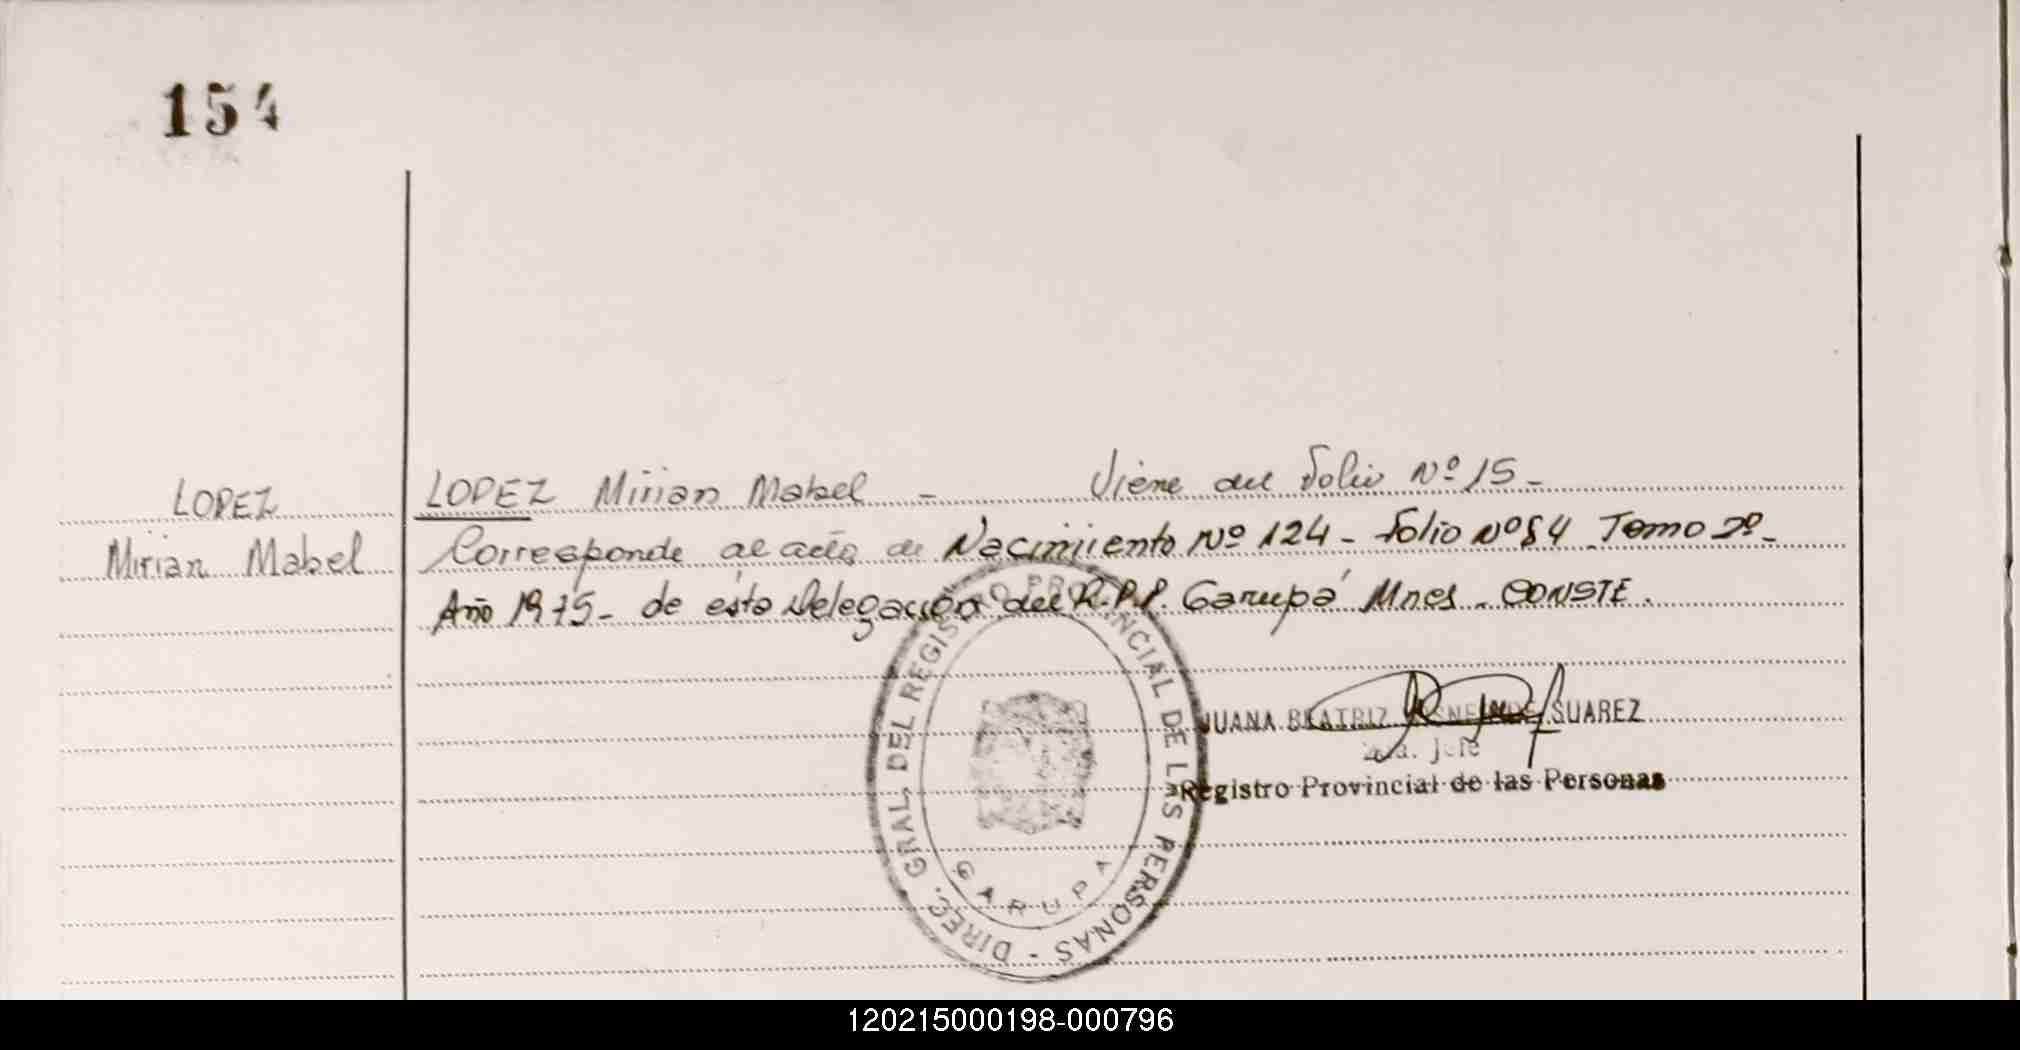 154
LOPEZ
Mirian Mabel
LOPEZ Mirian Mabel - Viene del Folio Nº 15 -
Corresponde al acta de Nacimiento Nº 124 - Folio Nº 84 Tomo 2º -
Año 1975 - de ésta Delegación del R.P.P. Garupá Mnes. CONSTE.
DIREC. GRAL. DEL REGISTRO PROVINCIAL DE LAS PERSONAS -
GARUPA
JUANA BEATRIZ SUAREZ
Jefe
Registro Provincial de las Personas
120215000198-000796